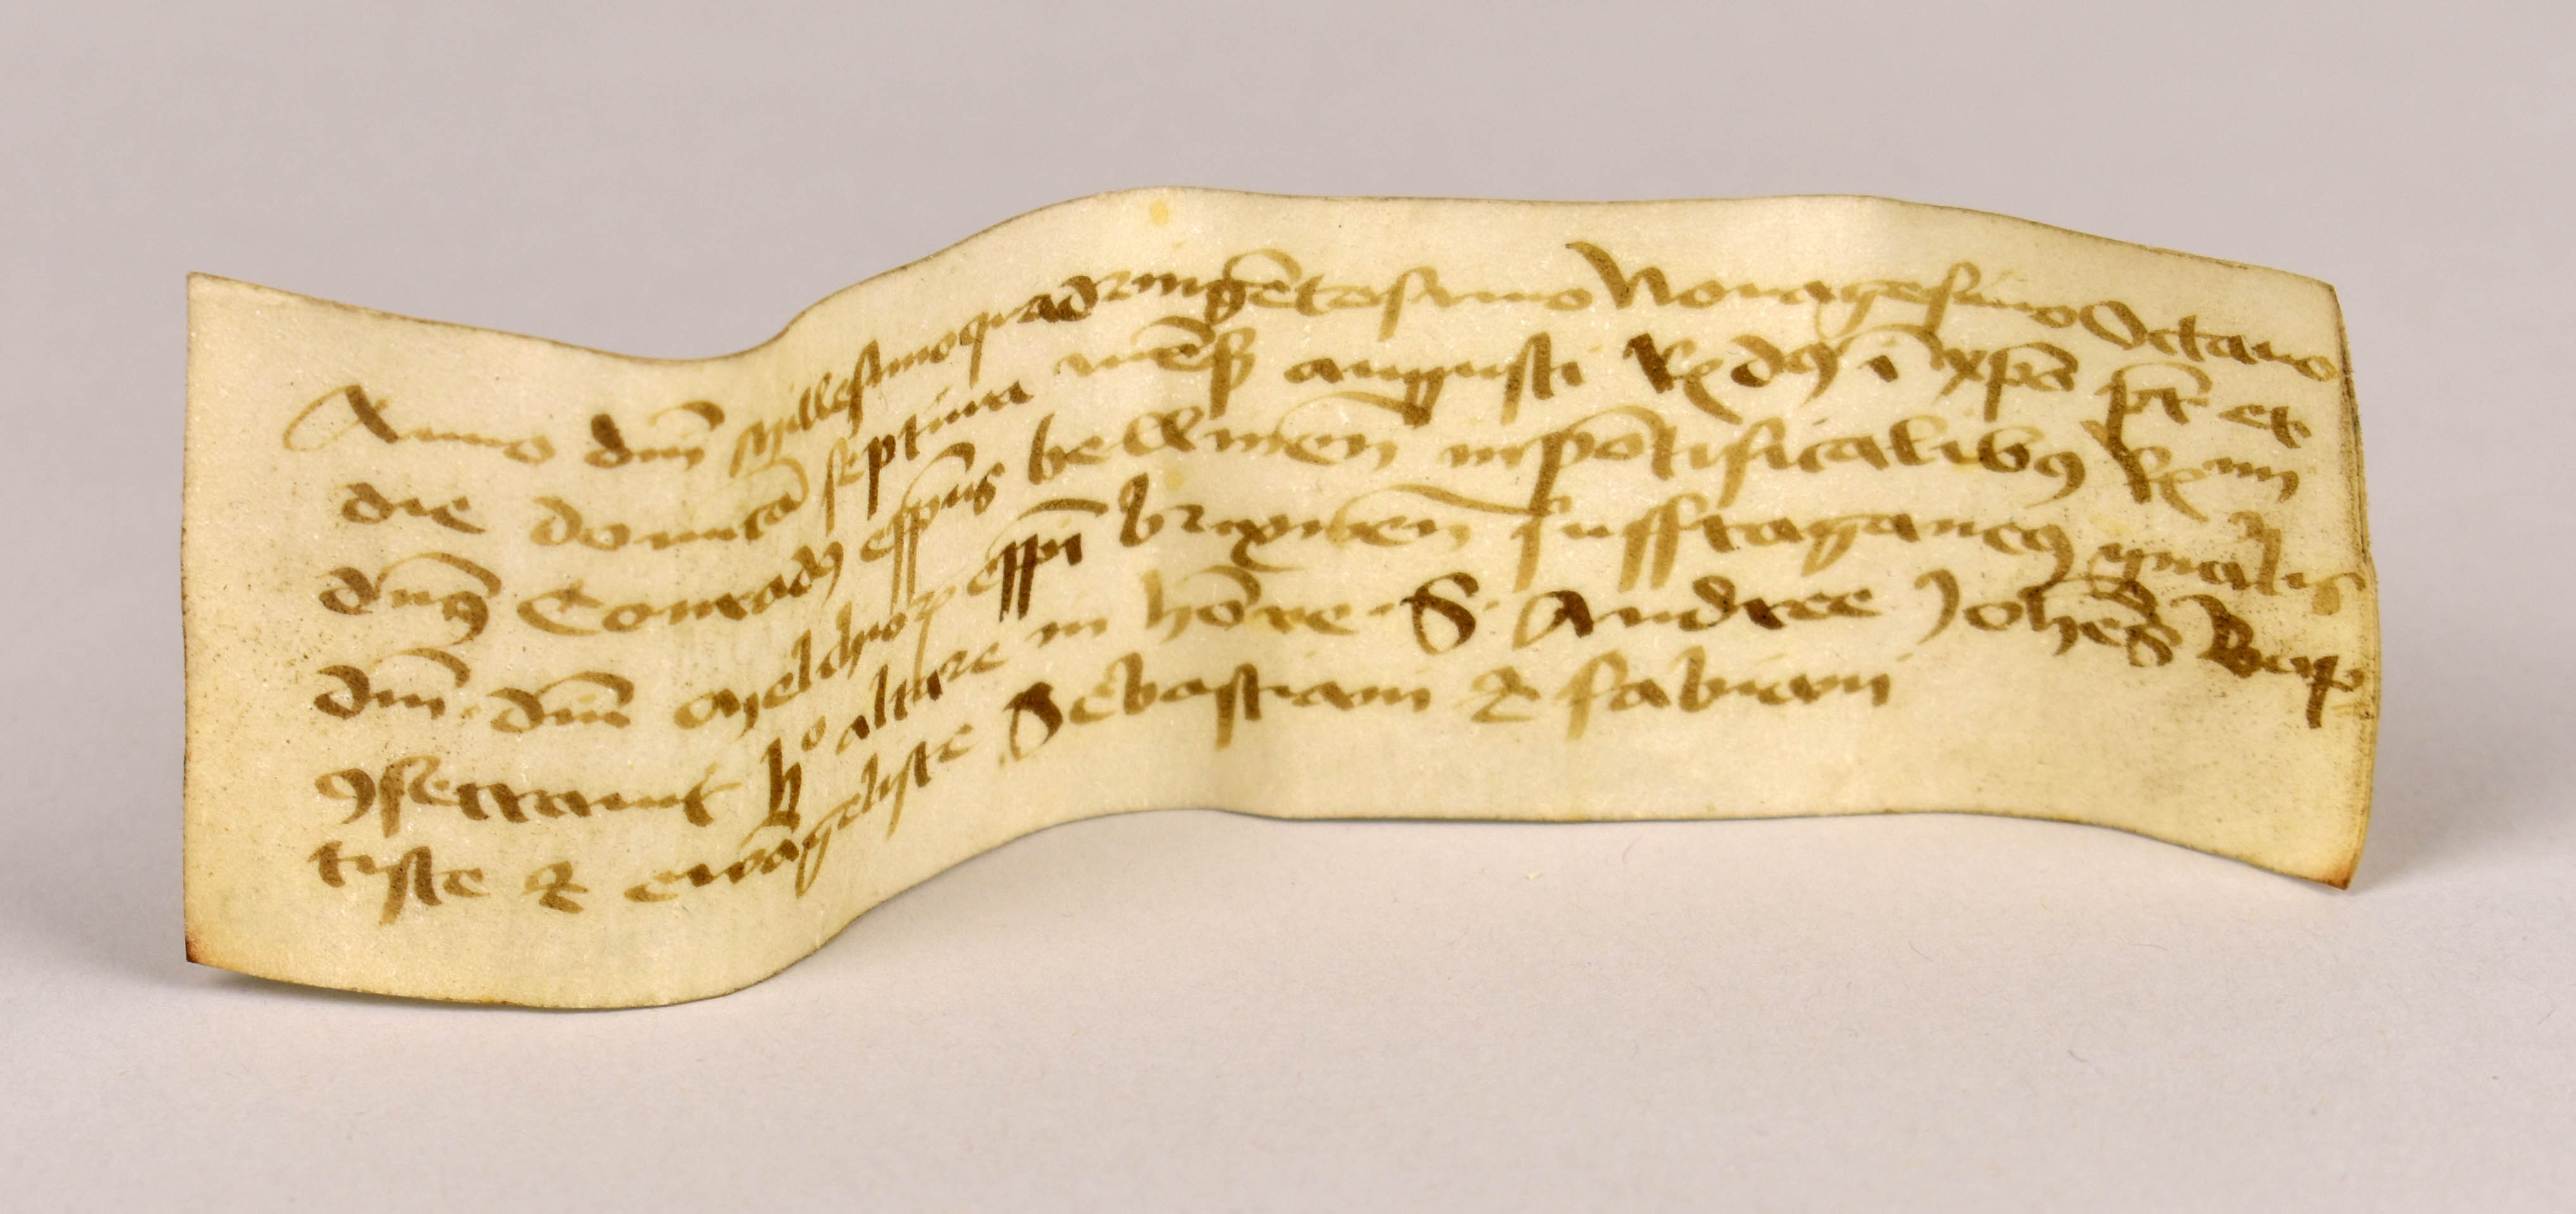 Anno dnī Millesimoquadringētesimo Nonagesimo Octauo
die domīca septima mēs augusti Rꝰ dꝰ ī xpō pr̄ et
dn̄s Conradꝰ ep̄pus bellinen̄ in pōtificalibꝰ Rmi
dn̄i dn̄i Melchior ep̄pi brixinen̄ suffraganeꝰ gn̄alis
ꝯsecrauit hͦ altare in hōre S Andree Johēs Bap
tiste & ewāgeliste Sebastiani & fabiani